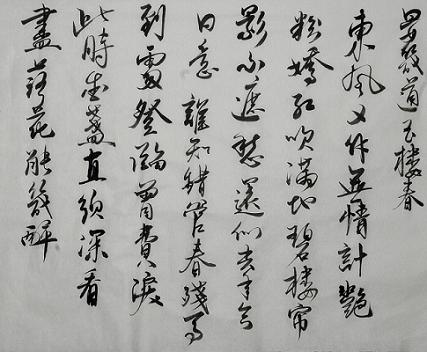 晏幾道玉樓春
東風又作無情計艷
粉嬌紅吹滿地碧樓帘
影不遮愁還似去年今
日意誰知錯管春殘事
到處登臨曾費淚
此時金盞直須深看
盡落花能幾醉